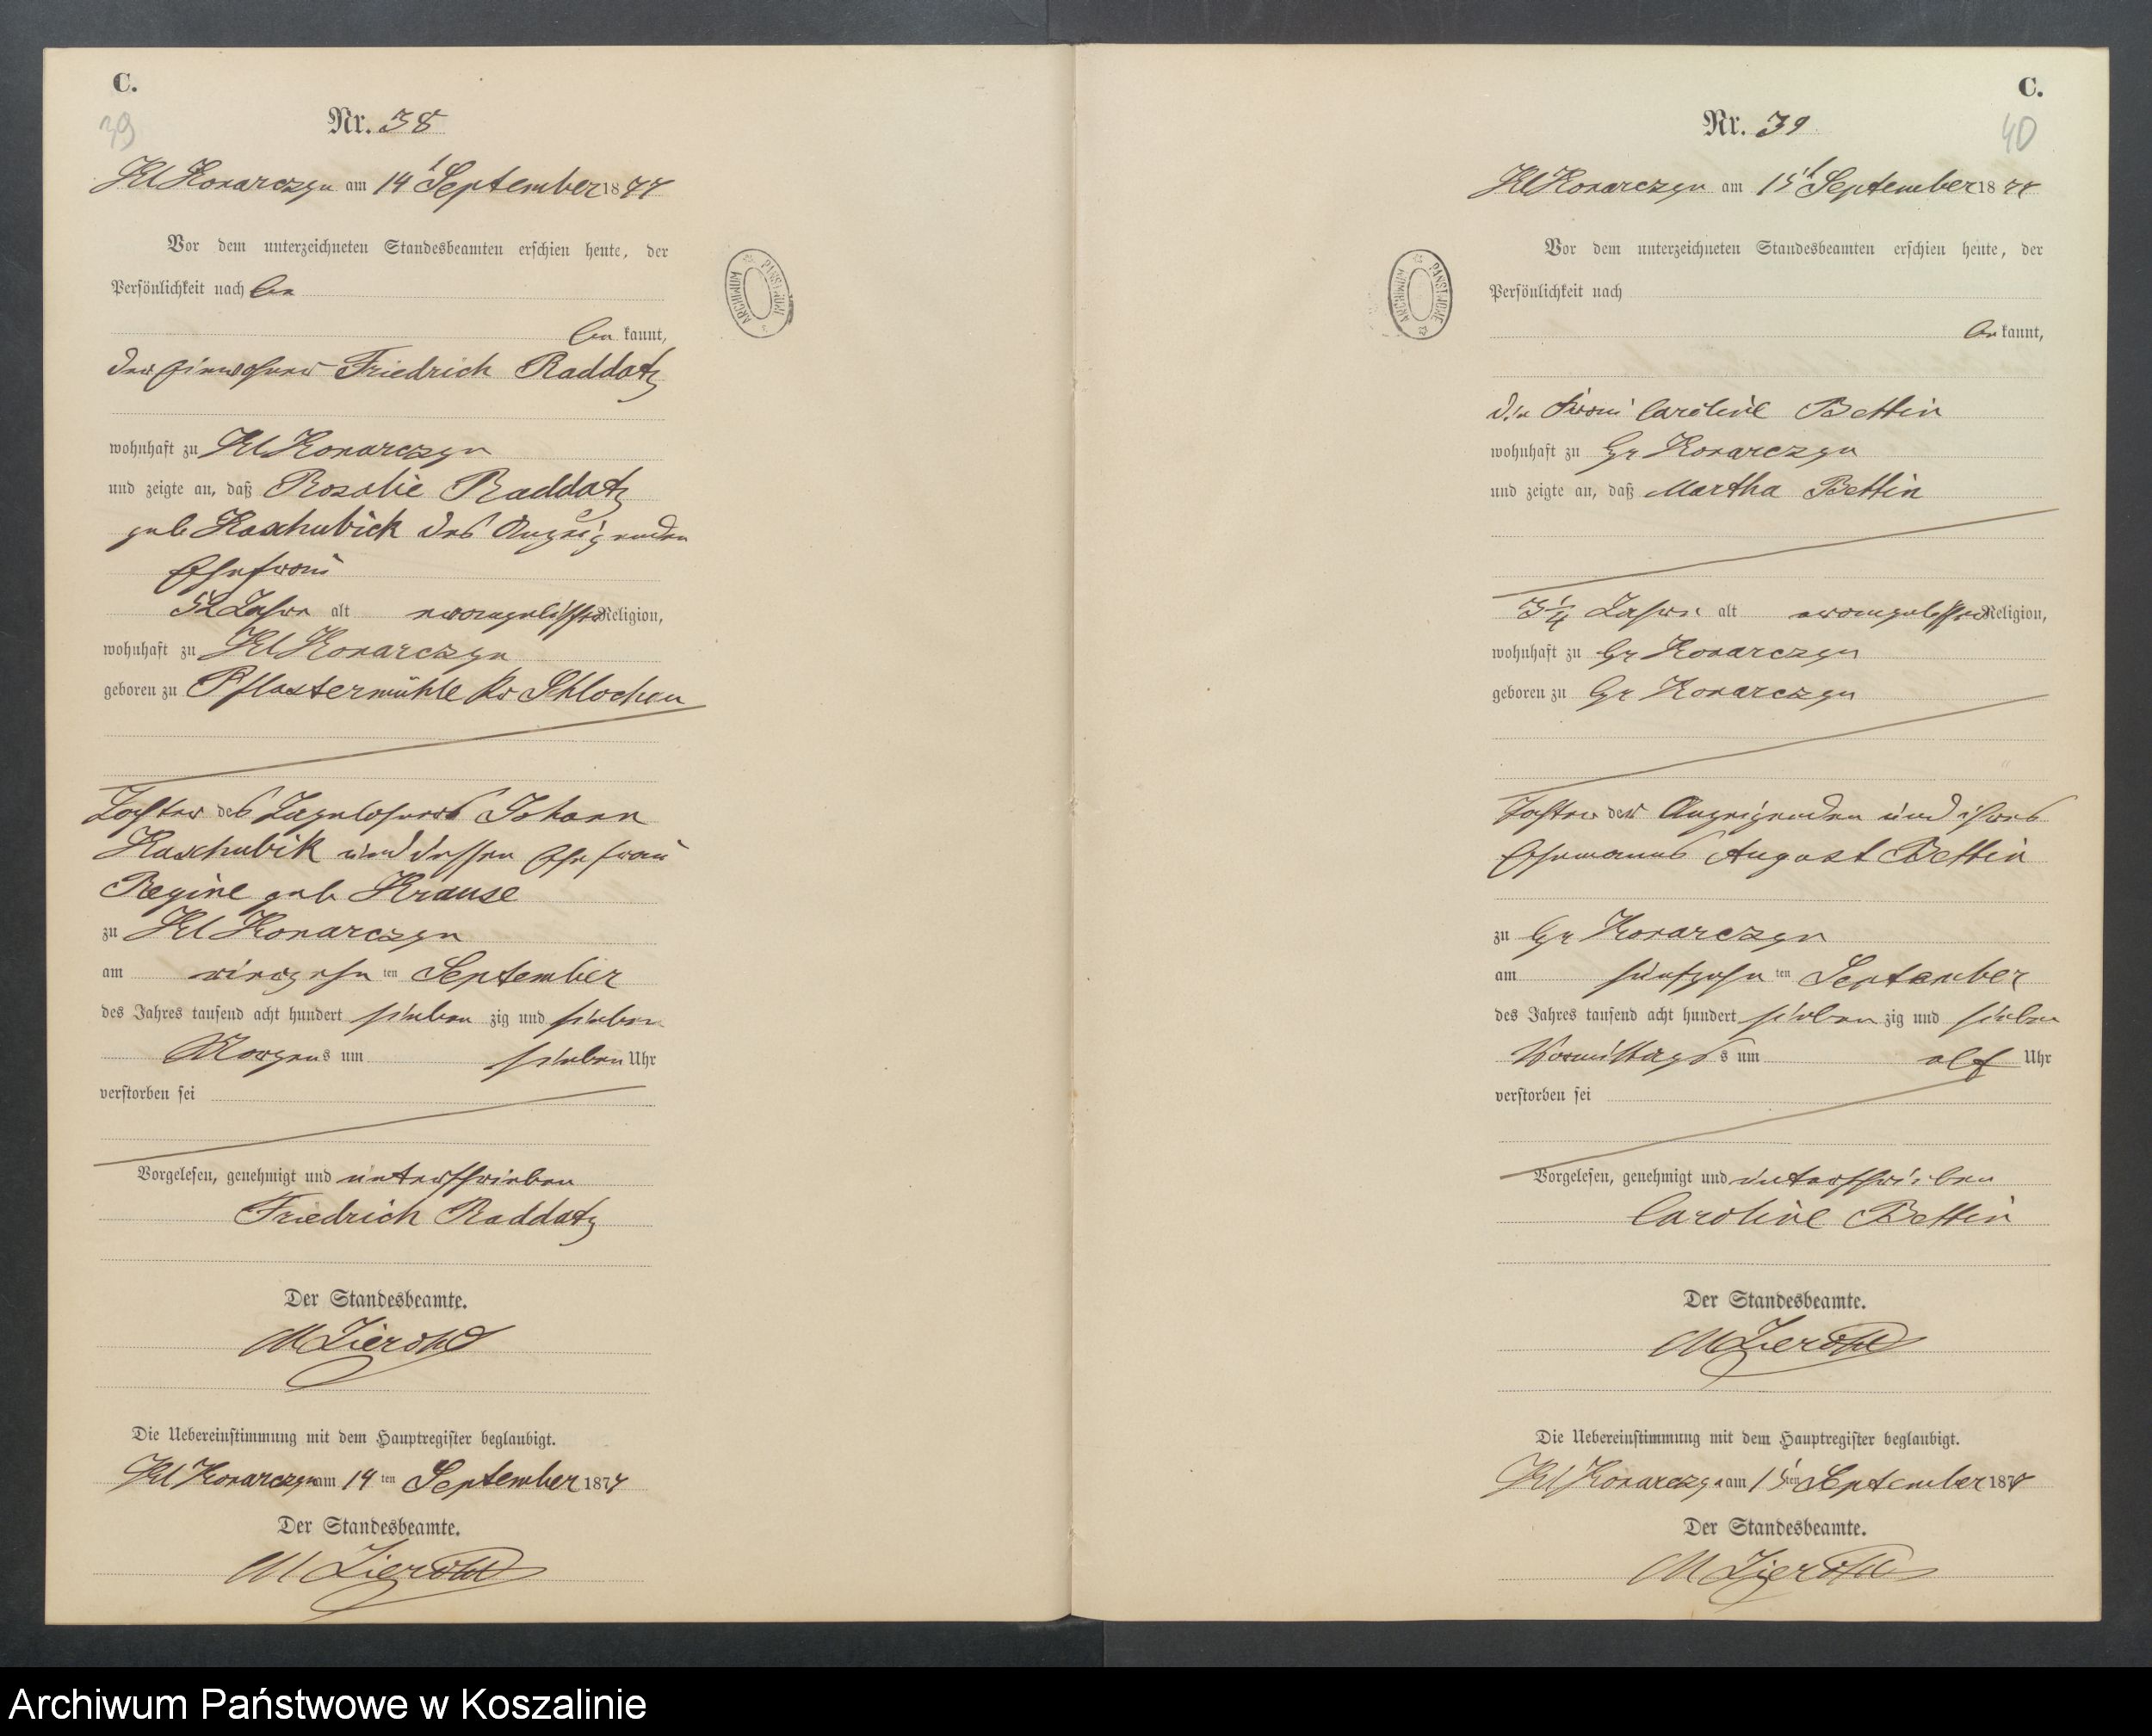 C.
39
Nr. 38
Kl Konarczyn am 14t September 1877
Vor dem unterzeichneten Standesbeamten erschien heute, der
Persönlichkeit nach be
be kannt,
der Einwohner Friedrich Raddatz
wohnhaft zu Kl Konarczyn
und zeigte an, daß Rosalie Raddatz
geb Kaschubick des Anzeigenden
Ehefrau
52 Jahre alt evangelischer Religion,
wohnhaft zu Kl Konarczyn
geboren zu Pflastermühle Kr Schlochau
Tochter des Tagelöhners Johann
Kaschubik und dessen Ehefrau
Regine geb Krause
zu Kl Konarczyn
am vierzehn ten September
des Jahres tausend acht hundert sieben zig und sieben
Morgens um sieben Uhr
verstorben sei
Vorgelesen, genehmigt und unterschrieben
Friedrich Raddatz
Der Standesbeamte.
M Zieroth
Die Uebereinstimmung mit dem Hauptregister beglaubigt.
Kl Konarczyn am 14 ten September 1877
Der Standesbeamte.
M Zieroth
ARCHIWUM PAŃSTWOWE
C.
40
Nr. 39
Kl Konarczyn am 15t September 1877
Vor dem unterzeichneten Standesbeamten erschien heute, der
Persönlichkeit nach
be kannt,
die Frau Caroline Bettin
wohnhaft zu Gr Konarczyn
und zeigte an, daß Martha Bettin
3 1/4 Jahre alt evangelischer Religion,
wohnhaft zu Gr Konarczyn
geboren zu Gr Konarczyn
Tochter der Anzeigenden und ihres
Ehemanns August Bettin
zu Gr Konarczyn
am fünfzehn ten September
des Jahres tausend acht hundert sieben zig und sieben
Vormittags s um elf Uhr
verstorben sei
Vorgelesen, genehmigt und unterschrieben
Caroline Bettin
Der Standesbeamte.
M Zieroth
Die Uebereinstimmung mit dem Hauptregister beglaubigt.
Kl Konarczyn am 15 ten September 1877
Der Standesbeamte.
M Zieroth
ARCHIWUM PAŃSTWOWE
Archiwum Państwowe w Koszalinie